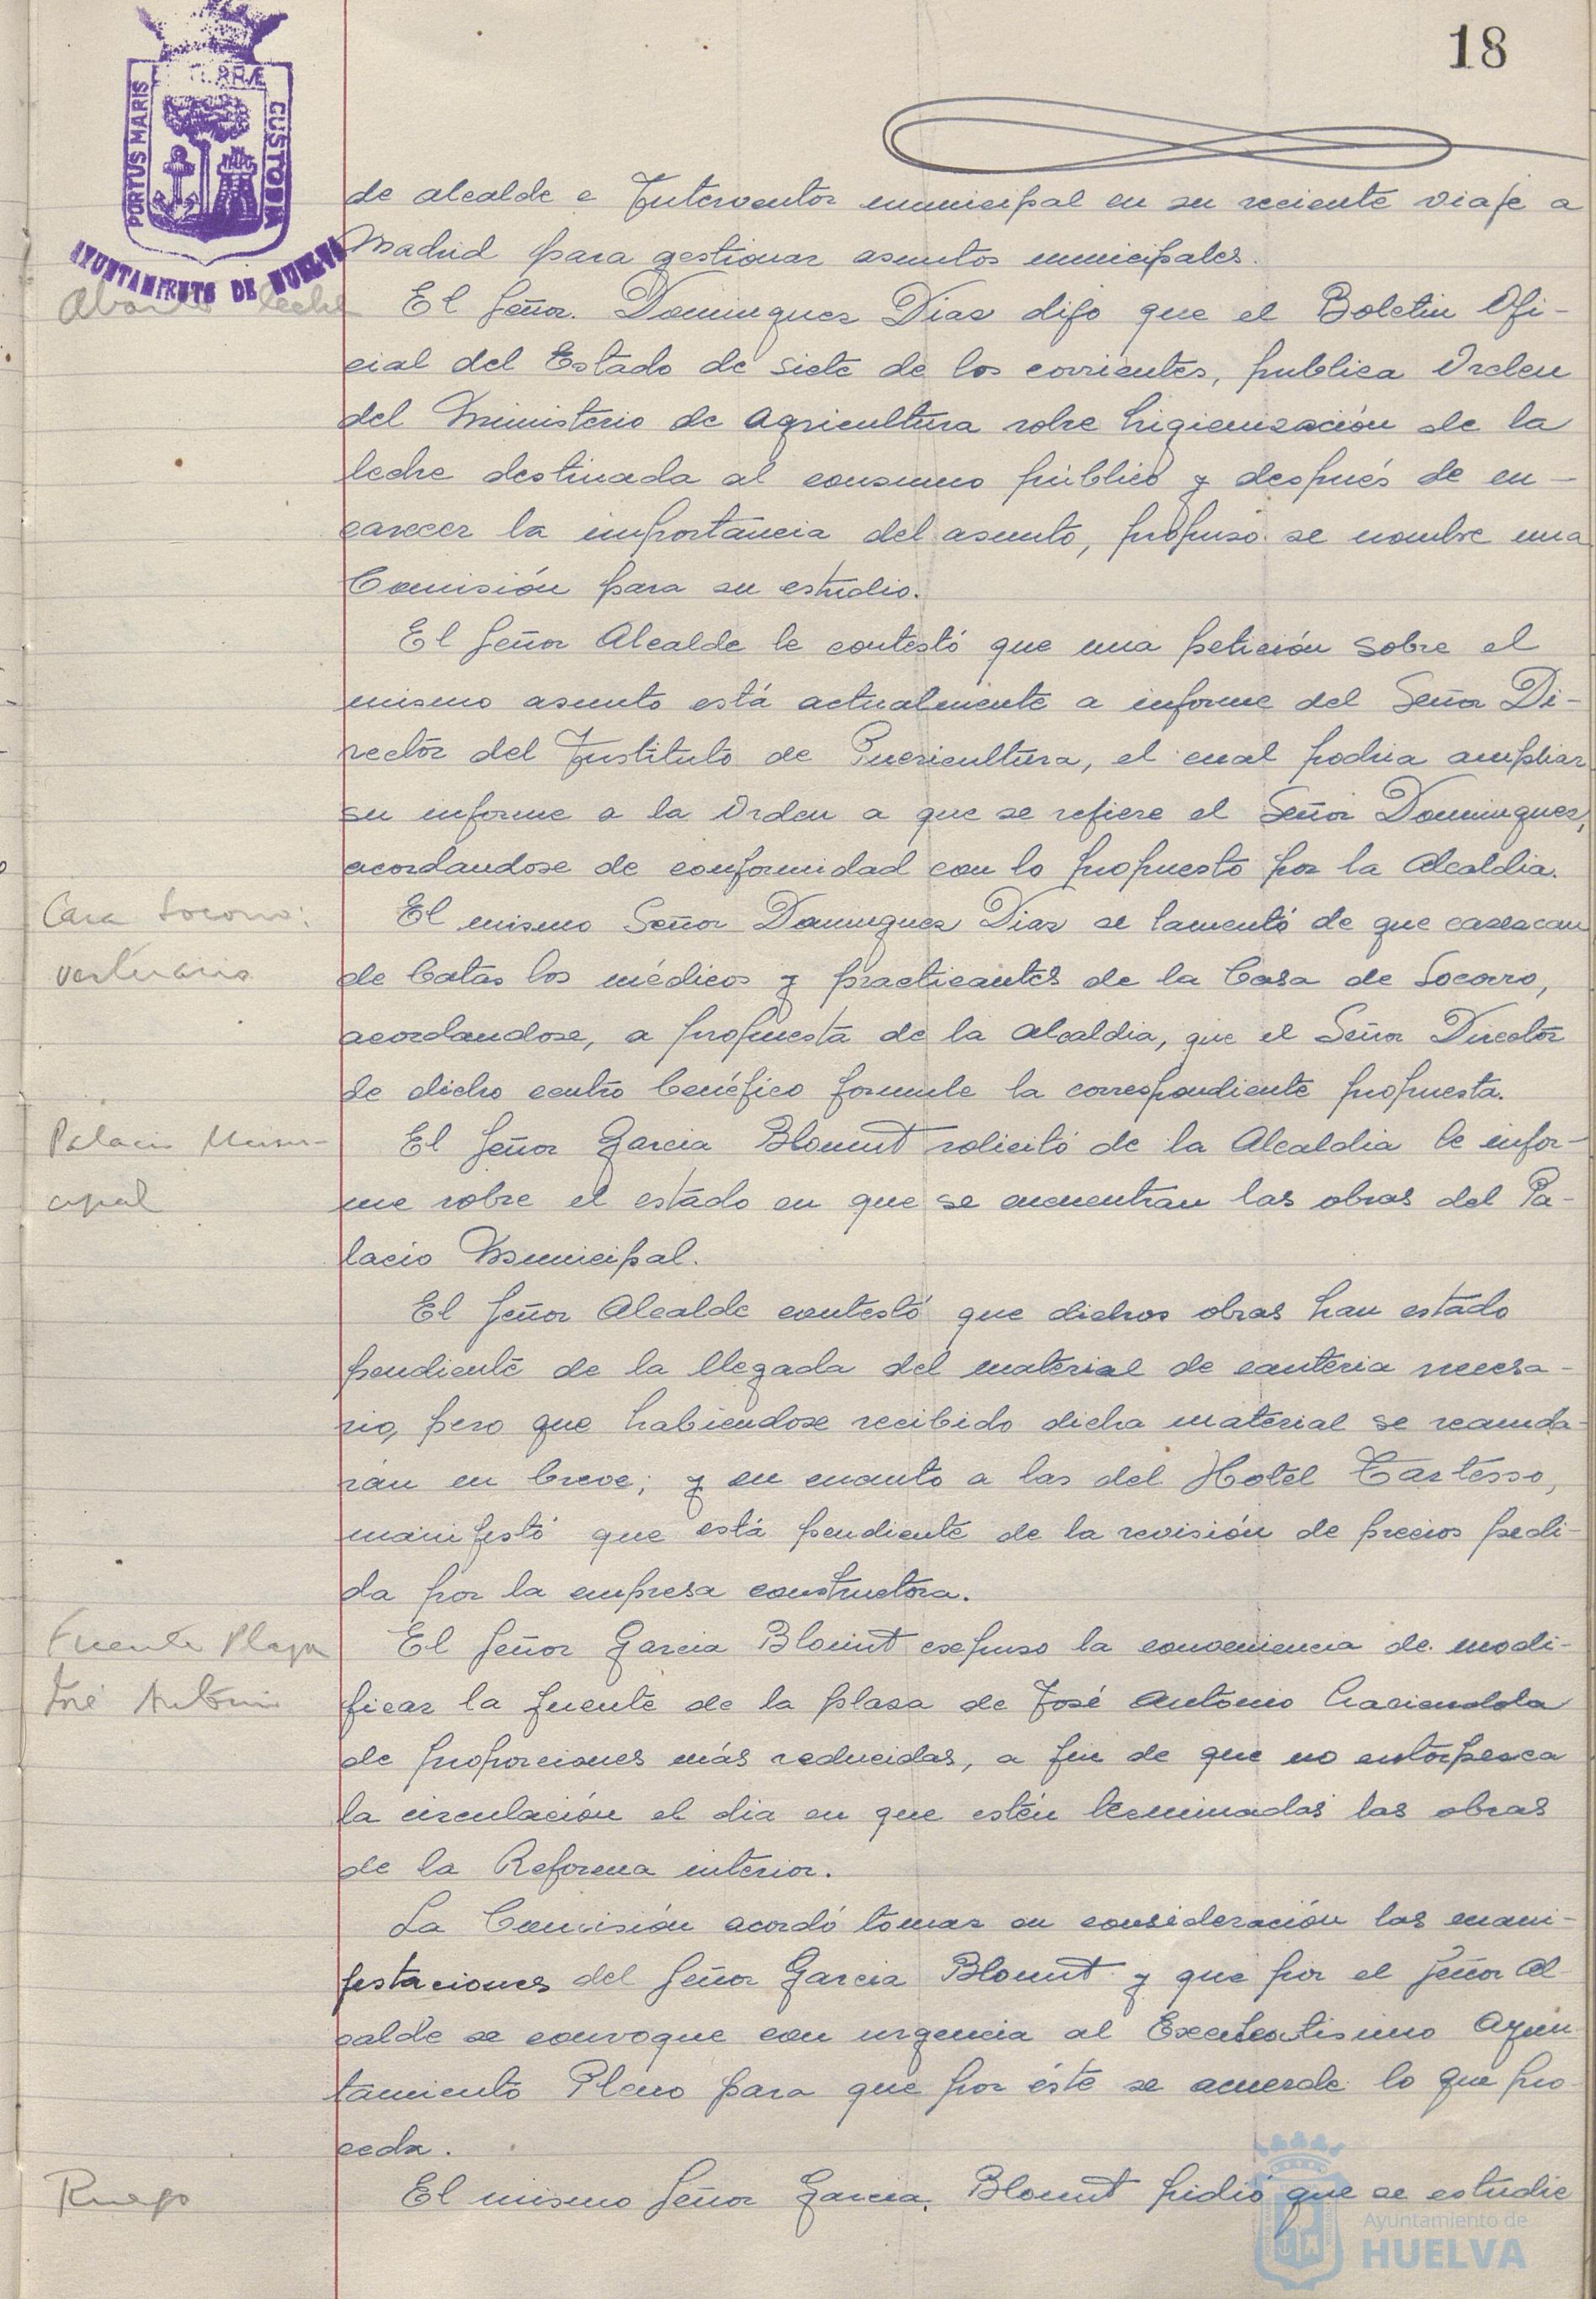 18
TERRÆ
PORTUS MARIS
CUSTODIA
AYUNTAMIENTO DE HUELVA
de alcalde e Interventor municipal en su reciente viaje a
Madrid para gestionar asuntos municipales.
Abasto leche
El Señor. Dominguez Diaz dijo que el Boletin Ofi-
cial del Estado de siete de los corrientes, publica Orden
del Ministerio de Agricultura sobre higienización de la
leche destinada al consumo público y después de en-
carecer la importancia del asunto, propuso se nombre una
Comisión para su estudio.
El Señor Alcalde le contestó que una petición sobre el
mismo asunto está actualmente a informe del Señor Di-
rector del Instituto de Puericultura, el cual podria ampliar
su informe a la Orden a que se refiere el Señor Dominguez,
acordandose de conformidad con lo propuesto por la Alcaldia.
Casa Socorro:
vestuario
El mismo Señor Dominguez Diaz se lamentó de que carezcan
de batas los médicos y practicantes de la Casa de Socorro,
acordandose, a propuesta de la Alcaldia, que el Señor Director
de dicho centro benéfico formule la correspondiente propuesta.
Palacio Muni-
cipal
El Señor Garcia Blount solicitó de la Alcaldia le infor-
me sobre el estado en que se encuentran las obras del Pa-
lacio Municipal.
El Señor Alcalde contestó que dichas obras han estado
pendiente de la llegada del material de canteria necesa-
rio, pero que habiendose recibido dicha material se reanuda-
rán en breve; y en cuanto a las del Hotel Tartesso,
manifestó que está pendiente de la revisión de precios pedi-
da por la empresa constructora.
Fuente Plaza
José Antonio
El Señor Garcia Blount expuso la conveniencia de modi-
ficar la fuente de la plaza de José Antonio haciendola
de proporciones más reducidas, a fin de que no entorpezca
la circulación el dia en que estén terminadas las obras
de la Reforma interior.
La Comisión acordó tomar en consideración las mani-
festaciones del Señor Garcia Blount y que por el Señor Al-
calde se convoque con urgencia al Excelentisimo Ayun-
tamiento Pleno para que por éste se acuerde lo que pro
ceda.
Ruego
El mismo Señor Garcia Blount pidió que se estudie
Ayuntamiento de
HUELVA